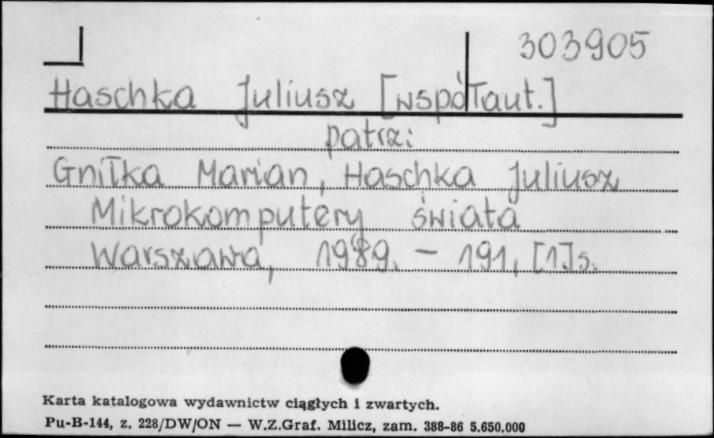 303905
Haschka Juliusz [współaut.]
patrz:
Gniłka Marian, Haschka Juliusz
Mikrokomputery świata
Warszawa, 1989. - 191, [1]s.
Karta katalogowa wydawnictw ciągłych i zwartych.
Pu-B-144, z. 228/DW/ON — W.Z.Graf. Milicz, zam. 388-86 5.650.000